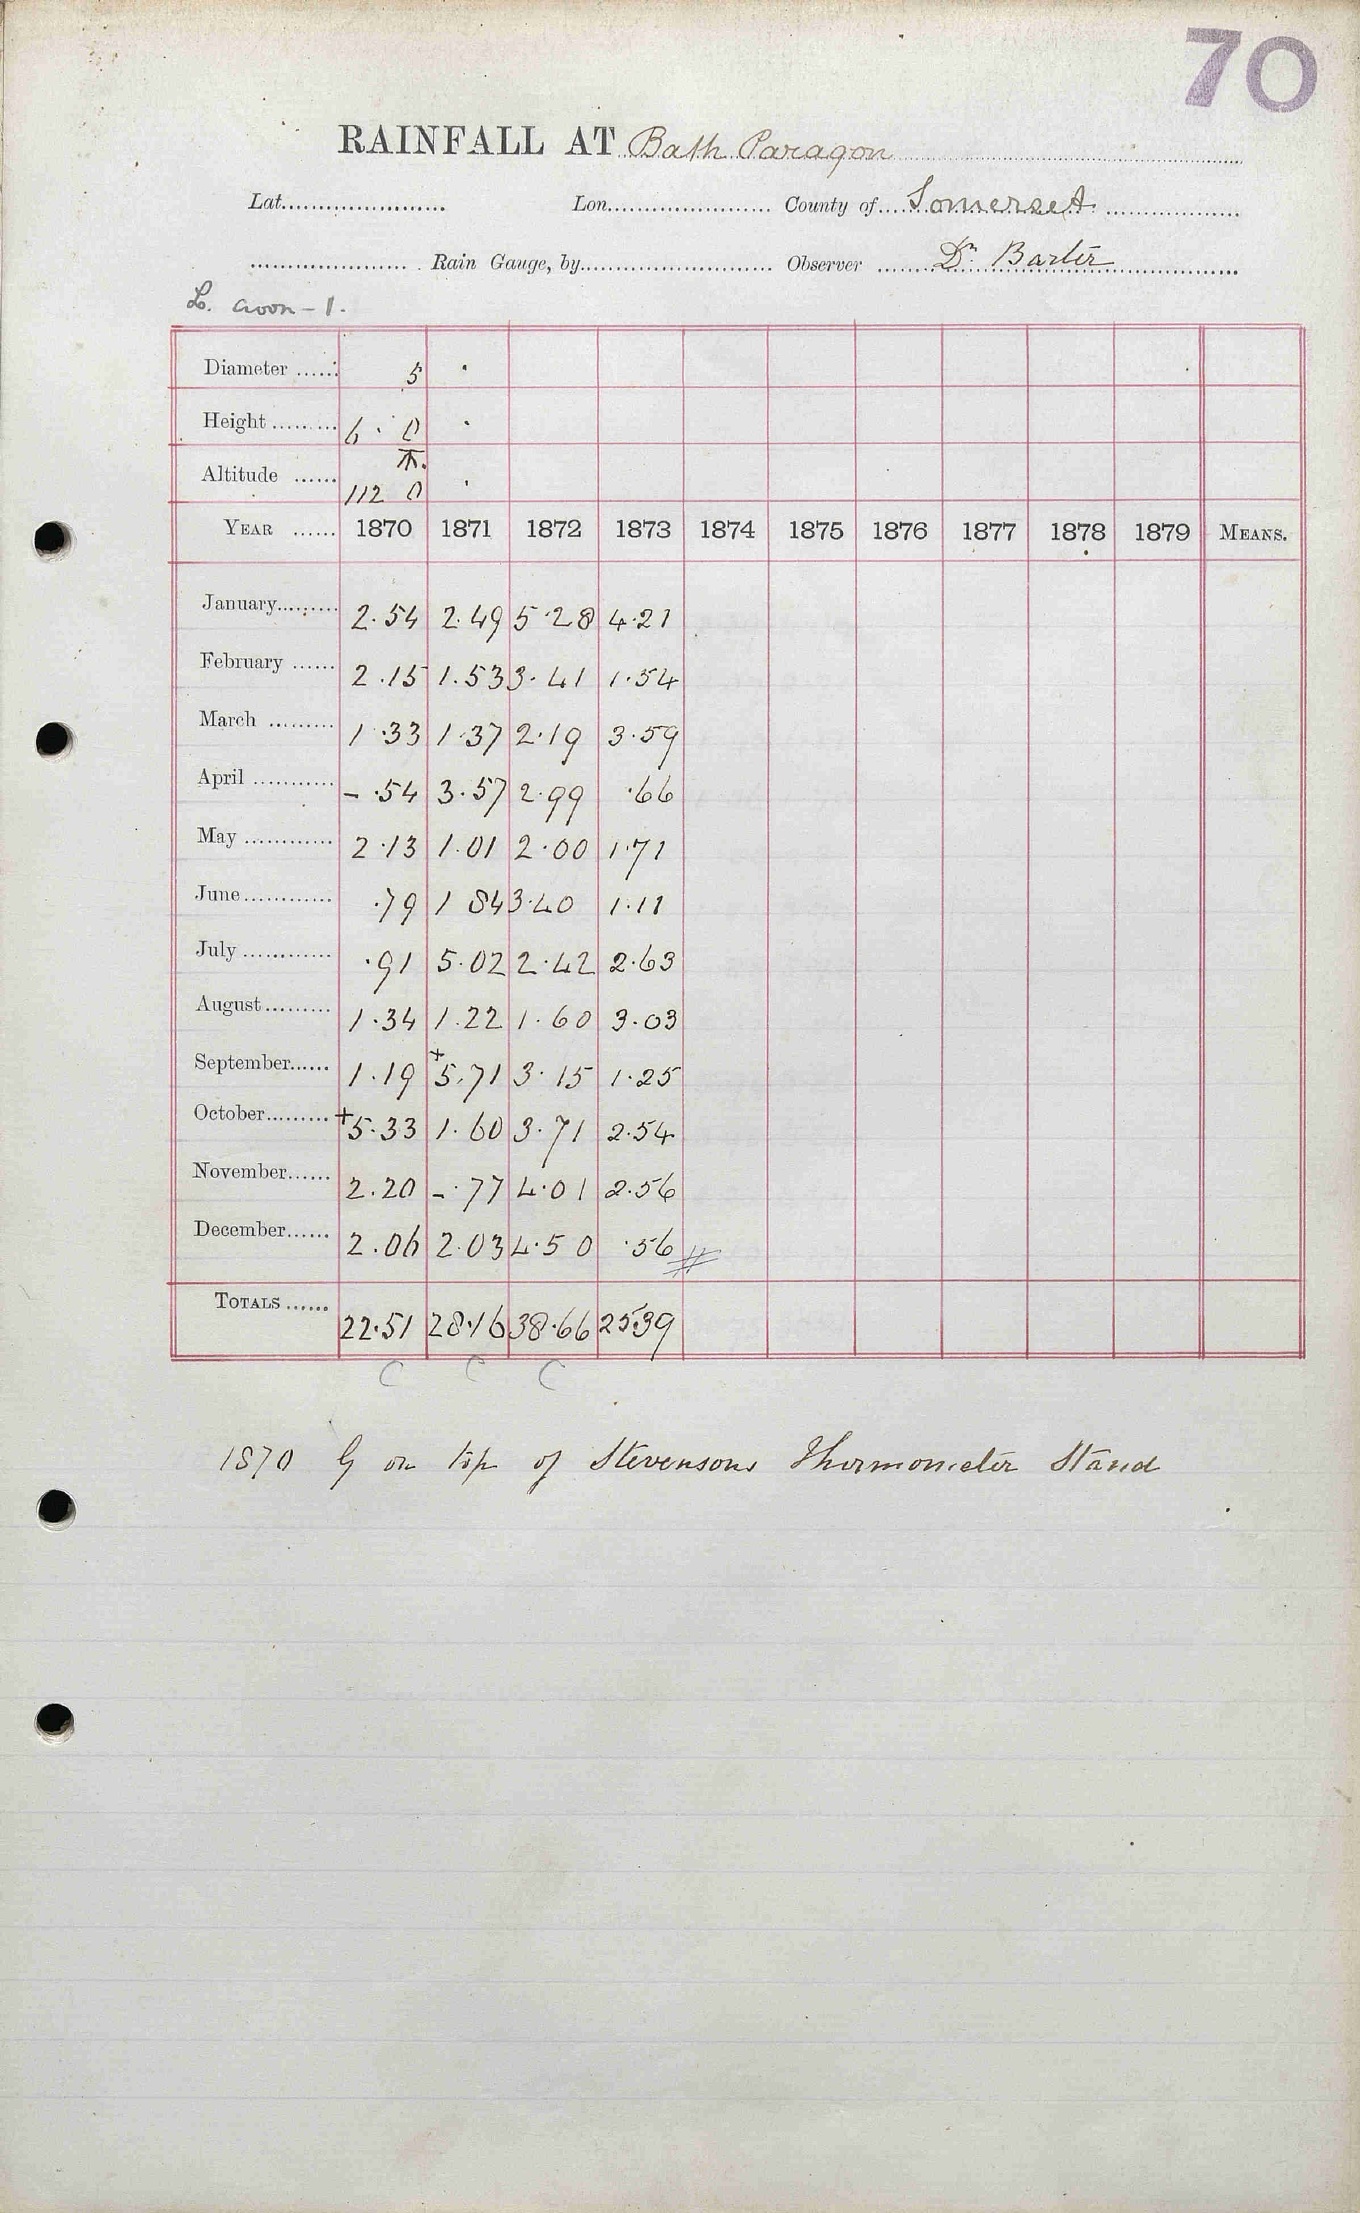 70
RAINFALL AT Bath Paragon
Lat. Lon. County of Somerset
Rain Gauge, by Observer Dr. Barter
L. Avon - 1.
Diameter 5 .
Height 6 . 0 .
Altitude T. 112 0 .
YEAR 1870 1871 1872 1873 1874 1875 1876 1877 1878 1879 MEANS.
January 2.54 2.49 5.28 4.21
February 2.15 1.53 3.41 1.54
March 1.33 1.37 2.19 3.59
April - .54 3.57 2.99 .66
May 2.13 1.01 2.00 1.71
June .79 1 84 3.40 1.11
July .91 5.02 2.42 2.63
August 1.34 1.22 1.60 3.03
September 1.19 +5.71 3.15 1.25
October +5.33 1.60 3.71 2.54
November 2.20 - .77 4.01 2.56
December 2.06 2.03 4.50 .56
TOTALS 22.51 28.16 38.66 25.39
C C C
1870 G on top of Stevensons Thermometer Stand